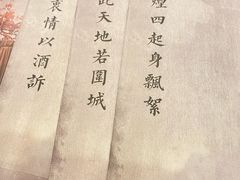 煙四起身飄絮
此天地若圍城
衷情以酒訴